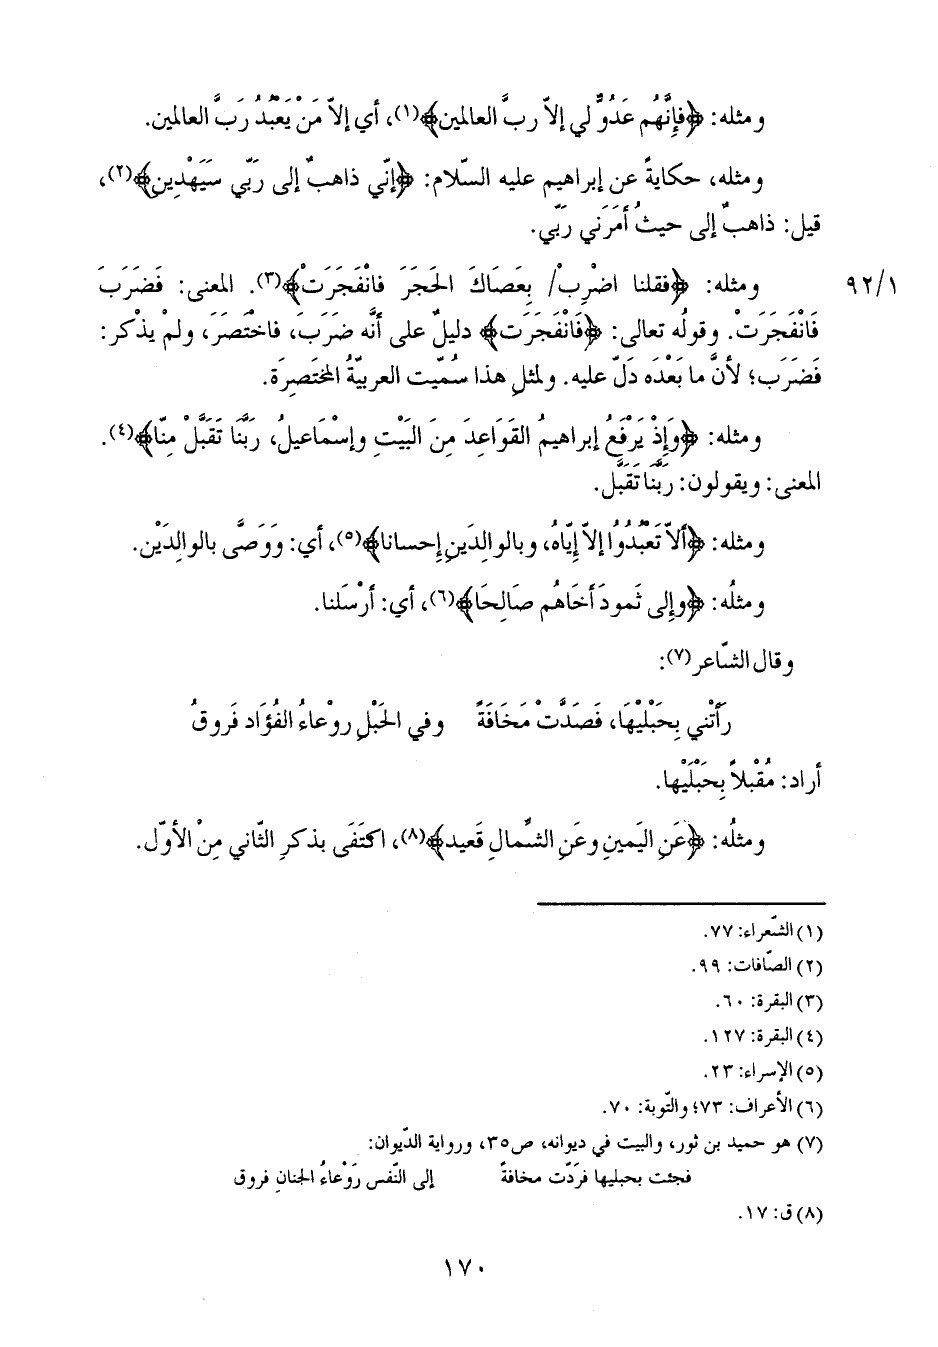 ومثله: ﴿فإنَّهُم عَدُوٌّ لي إلاّ ربَّ العالمين﴾(١)، أي إلاّ مَنْ يَعْبُدُ رَبَّ العالمين.
ومثله، حكايةً عن إبراهيم عليه السّلام: ﴿إنّي ذاهبٌ إلى رَبّي سَيَهْدِين﴾(٢)،
قيل: ذاهبٌ إلى حيثُ أمَرَني رَبّي.
٩٢/١ ومثله: ﴿فقلنا اضْرِبْ/ بِعَصَاكَ الحَجَرَ فانْفَجَرَتْ﴾(٣). المعنى: فَضَرَبَ
فَانْفَجَرَتْ. وقولُه تعالى: ﴿فَانْفَجَرَت﴾ دليلٌ على أنَّه ضَرَبَ، فاخْتَصَرَ، ولمْ يذْكر:
فَضَرَب؛ لأنَّ ما بَعْدَه دَلّ عليه. ولمثلِ هذا سُمّيت العربيّةُ المُخْتَصِرَة.
ومثله: ﴿وَإِذْ يَرْفَعُ إبراهيمُ القَوَاعِدَ مِنَ البَيْتِ وإسْمَاعيلُ، رَبَّنَا تَقَبَّلْ مِنّا﴾(٤).
المعنى: ويقولون: رَبَّنَا تَقَبَّل.
ومثله: ﴿ألاّ تَعْبُدُوا إلاّ إيّاهُ، وبالوالِدَينِ إحسانا﴾(٥)، أي: وَوَصَّى بالوالِدَيْن.
ومثلُه: ﴿وإلى ثَمودَ أخَاهُم صَالِحَا﴾(٦)، أي: أرْسَلنا.
وقال الشّاعر(٧):
رَأَتْني بِحَبْليْهَا، فَصَدَّتْ مَخَافَةً وفي الحَبْلِ روْعاءُ الفُؤَاد فَروقُ
أراد: مُقْبلاً بِحَبْلَيْها.
ومثلُه: ﴿عَنِ اليَمينِ وعَنِ الشّمالِ قَعيد﴾(٨)، اكتَفَى بذكرِ الثّاني مِنْ الأوّل.
(١) الشّعراء: ٧٧.
(٢) الصّافات: ٩٩.
(٣) البقرة: ٦٠.
(٤) البقرة: ١٢٧.
(٥) الإسراء: ٢٣.
(٦) الأعراف: ٧٣؛ والتّوبة: ٧٠.
(٧) هو حميد بن ثور، والبيت في ديوانه، ص٣٥، ورواية الدّيوان:
فجئت بحبليها فرَدّت مخافةً إلى النّفس رَوْعاءُ الجنانِ فروق
(٨) ق: ١٧.
١٧٠